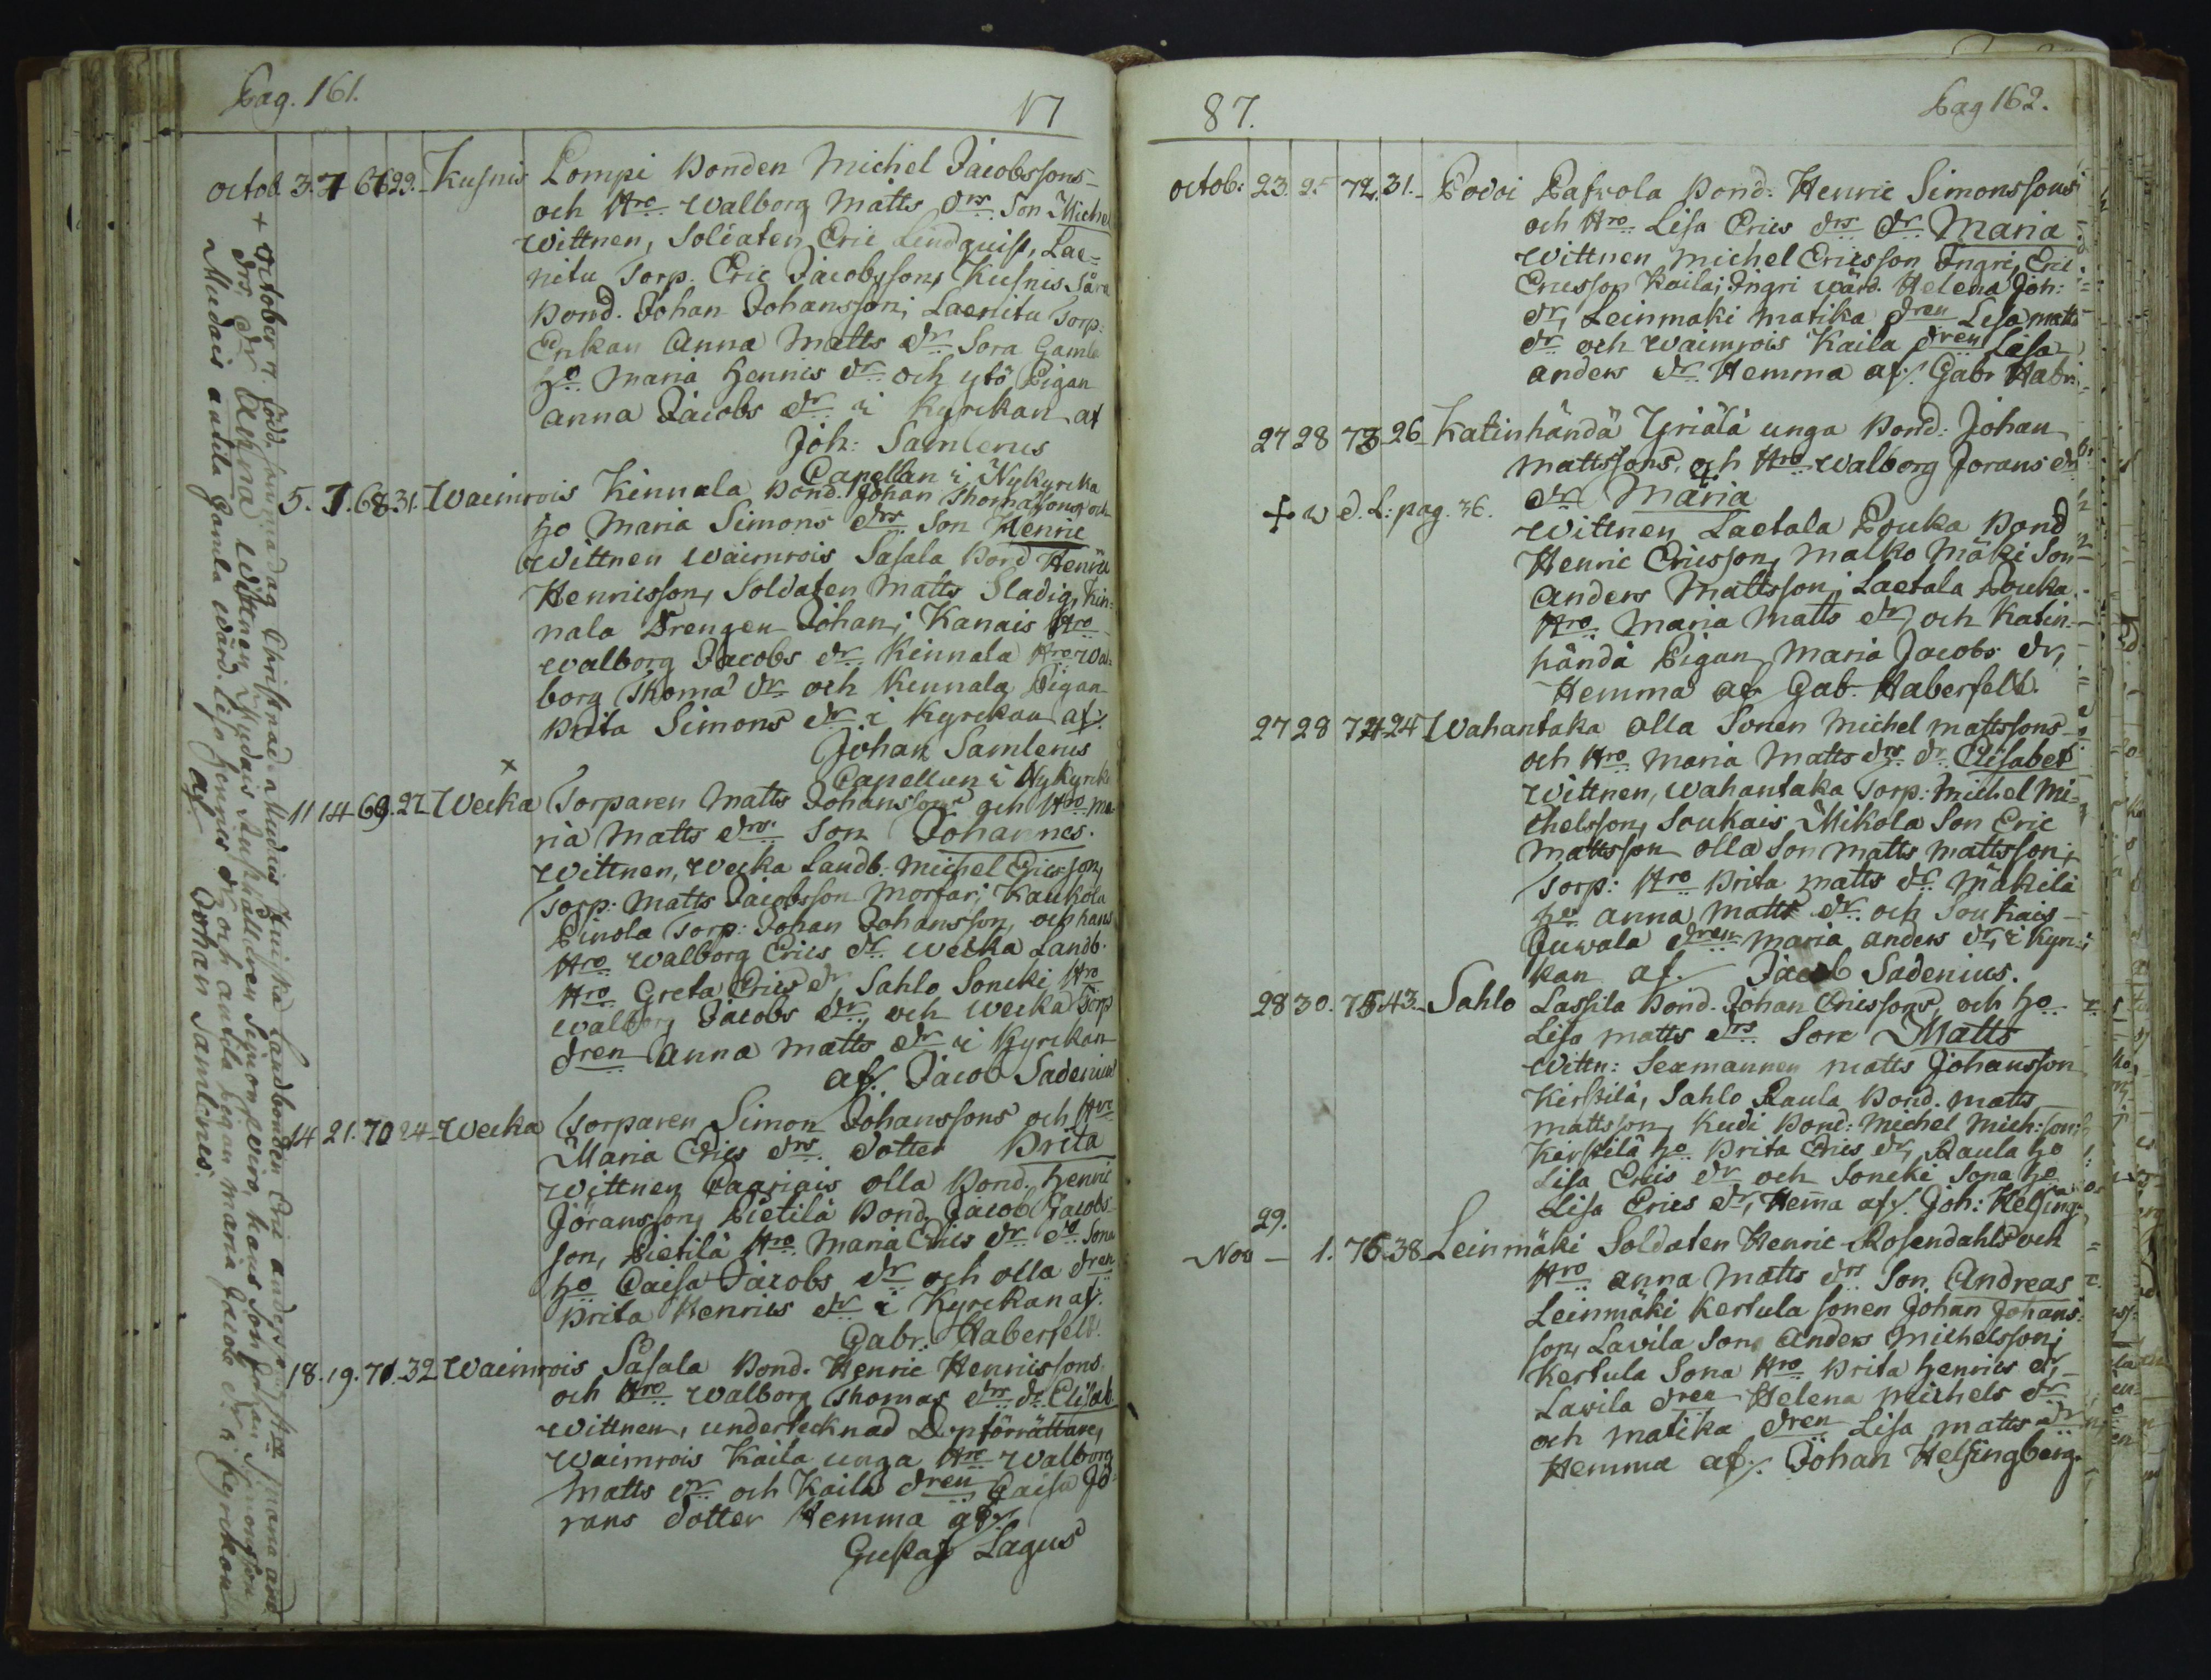 Pag. 161.
17
octob 3. 7 67 29. Kusnis Lompi Bonden Michel Jacobssons
och Hro Walborg Matts drs. Son Michel
Wittnen, Soldaten Eric Lindquist, Lae-
nitu Torp. Eric Jacobsson, Kusnis Sara
Bond. Johan Johansson; Laenitu Torp:
Enkan Anna Matts dr. Sora Gamla
ho Maria Henrics dr och ytö Pigan
Anna Jacobs dr i Kyrckan af
Joh: Samlenus
Capellan i Nykyrcka
5. 7. 68 31. Waimrois Kinnala Bond. Johan Thomassons och
ho Maria Simons drs Son Henric
Wittnen Waimrois Sasala Bond Henric
Henricsson, Soldaten Matts Sladig, Kin-
nala Drengen Johan; Kanais Hro
Walborg Jacobs dr Kinnala Hro Wal-
borg Thomæ dr och Kinnala Pigan
Brita Simons dr i Kyrckan af
Johan Samlenus
Capellan i Nykyrcka
11 14 69. 27 Wecka Torparen Matts Johanssons och Hro Ma-
ria Matts drs. Son Johannes.
Wittnen, Wecka Landb. Michel Ericsson,
Torp: Matts Jacobsson Morfar; Kaukola
Pinola Torp: Johan Johansson, och hans
Hro Walborg Erics dr. Wecka Landb.
Hro Greta Erics dr, Sahlo Soncki Hro
Walborg Jacobs dr, och Wecka Torp
dren Anna Matts dr i Kyrckan
af. Jacob Sadenius
14 21. 70 24 Wecka Torparen Simon Johanssons och Hro
Maria Erics drs. Dotter Brita
Wittnen Paariais Olla Bond. Henric
Jöransson, Pietilä Bond Jacob Jacobs-
son, Pietilä Hro Maria Erics dr. Sona
ho Caisa Jacobs dr och Olla dren
Brita Henrics dr i Kyrckan af
Gabr. Haberfelt.
18. 19. 71. 32 Waimrois Sasala Bond. Henric Henricssons
och Hro Walborg Thomas drs dr Elisab.
Wittnen, undertecknad Dopförrättare,
Waimrois Kaila unga Hro Walborg
Matts dr och Kaila dren Caisa Jö-
rans dotter Hemma af
Gustaf Lagus
+ October Landbonden Eric Anderssons Hro
drs dr Anna Wittnen Simon hans Son Johan Simonsson
Mudais Antila gamla wärd. Lisa Henrics dr och Antila Pigan Maria Jacobs dr i Kyrckan
af Johan Samlenes.
87.
Pag 162.
octob: 23. 25 72. 31. Podoi Pafwola Bond: Henric Simonssons
och Hro Lisa Erics drs dr Maria
Wittnen Michel Ericsson Ingri, Eric
Ericsson Kaila; Ingri wärd. Helena Joh:
dr, Leinmaki Matika dren Lisa Matts
dr och Waimrois Kaila dren Lisa
Anders dr Hemma af. Gabr Habr
27 28 73 26 Katinhändä Yriälä unga Bond: Johan
Mattssons, och Hro Walborg Jorans drs
dr Maria
+ w d. L: pag. 36.
Wittnen Laetala Pouka Bond
Henric Ericsson, Malko Mäki Son
Anders Mattsson; Laetala Pouka
Hro Maria Matts dr, och Katin-
händä Pigan Maria Jacobs dr,
Hemma af Gab. Haberfelt.
27 28 74 24 Wahantaka Olla Sonen Michel Mattssons
och Hro Maria Matts drs. dr. Elisabet
Wittnen, Wahantaka Torp: Michel Mi-
chelsson, Soukais Mikola Son Eric
Mattsson Olla Son Matts Mattsson;
Torp: Hro Brita Matts dr Mäkilä
ho Anna Matts dr och Soukais
Juwala dren Maria Anders dr, i Kyrc-
kan af. Jacob Sadenius.
28 30. 75 43. Sahlo Lassila Bond. Johan Ericssons, och ho
Lisa Matts drs. Son Matts
Wittn: Sexmannen Matts Johansson
Kirstilä, Sahlo Raula Bond. Matts
Mattsson, Kudi Bond: Michel Mich:son;
Kirstilä ho Brita Erics dr, Raula ho
Lisa Erics dr och Soncki Sona ho
Lisa Erics dr, Hema af. Joh: Helsing:
29.
Nov — 1. 76 38 Leinmäki Soldaten Henric Rosendahls och
Hro Anna Matts drs Son Andreas
Leinmäki Kertula Sonen Johan Johans-
son, Lavila Son Anders Michelsson;
Kertula Sona Hro Brita Henrics dr,
Lavila dren Helena Michels dr
och Matika dren Lisa Matts dr
Hemma af. Johan Helsingberg.